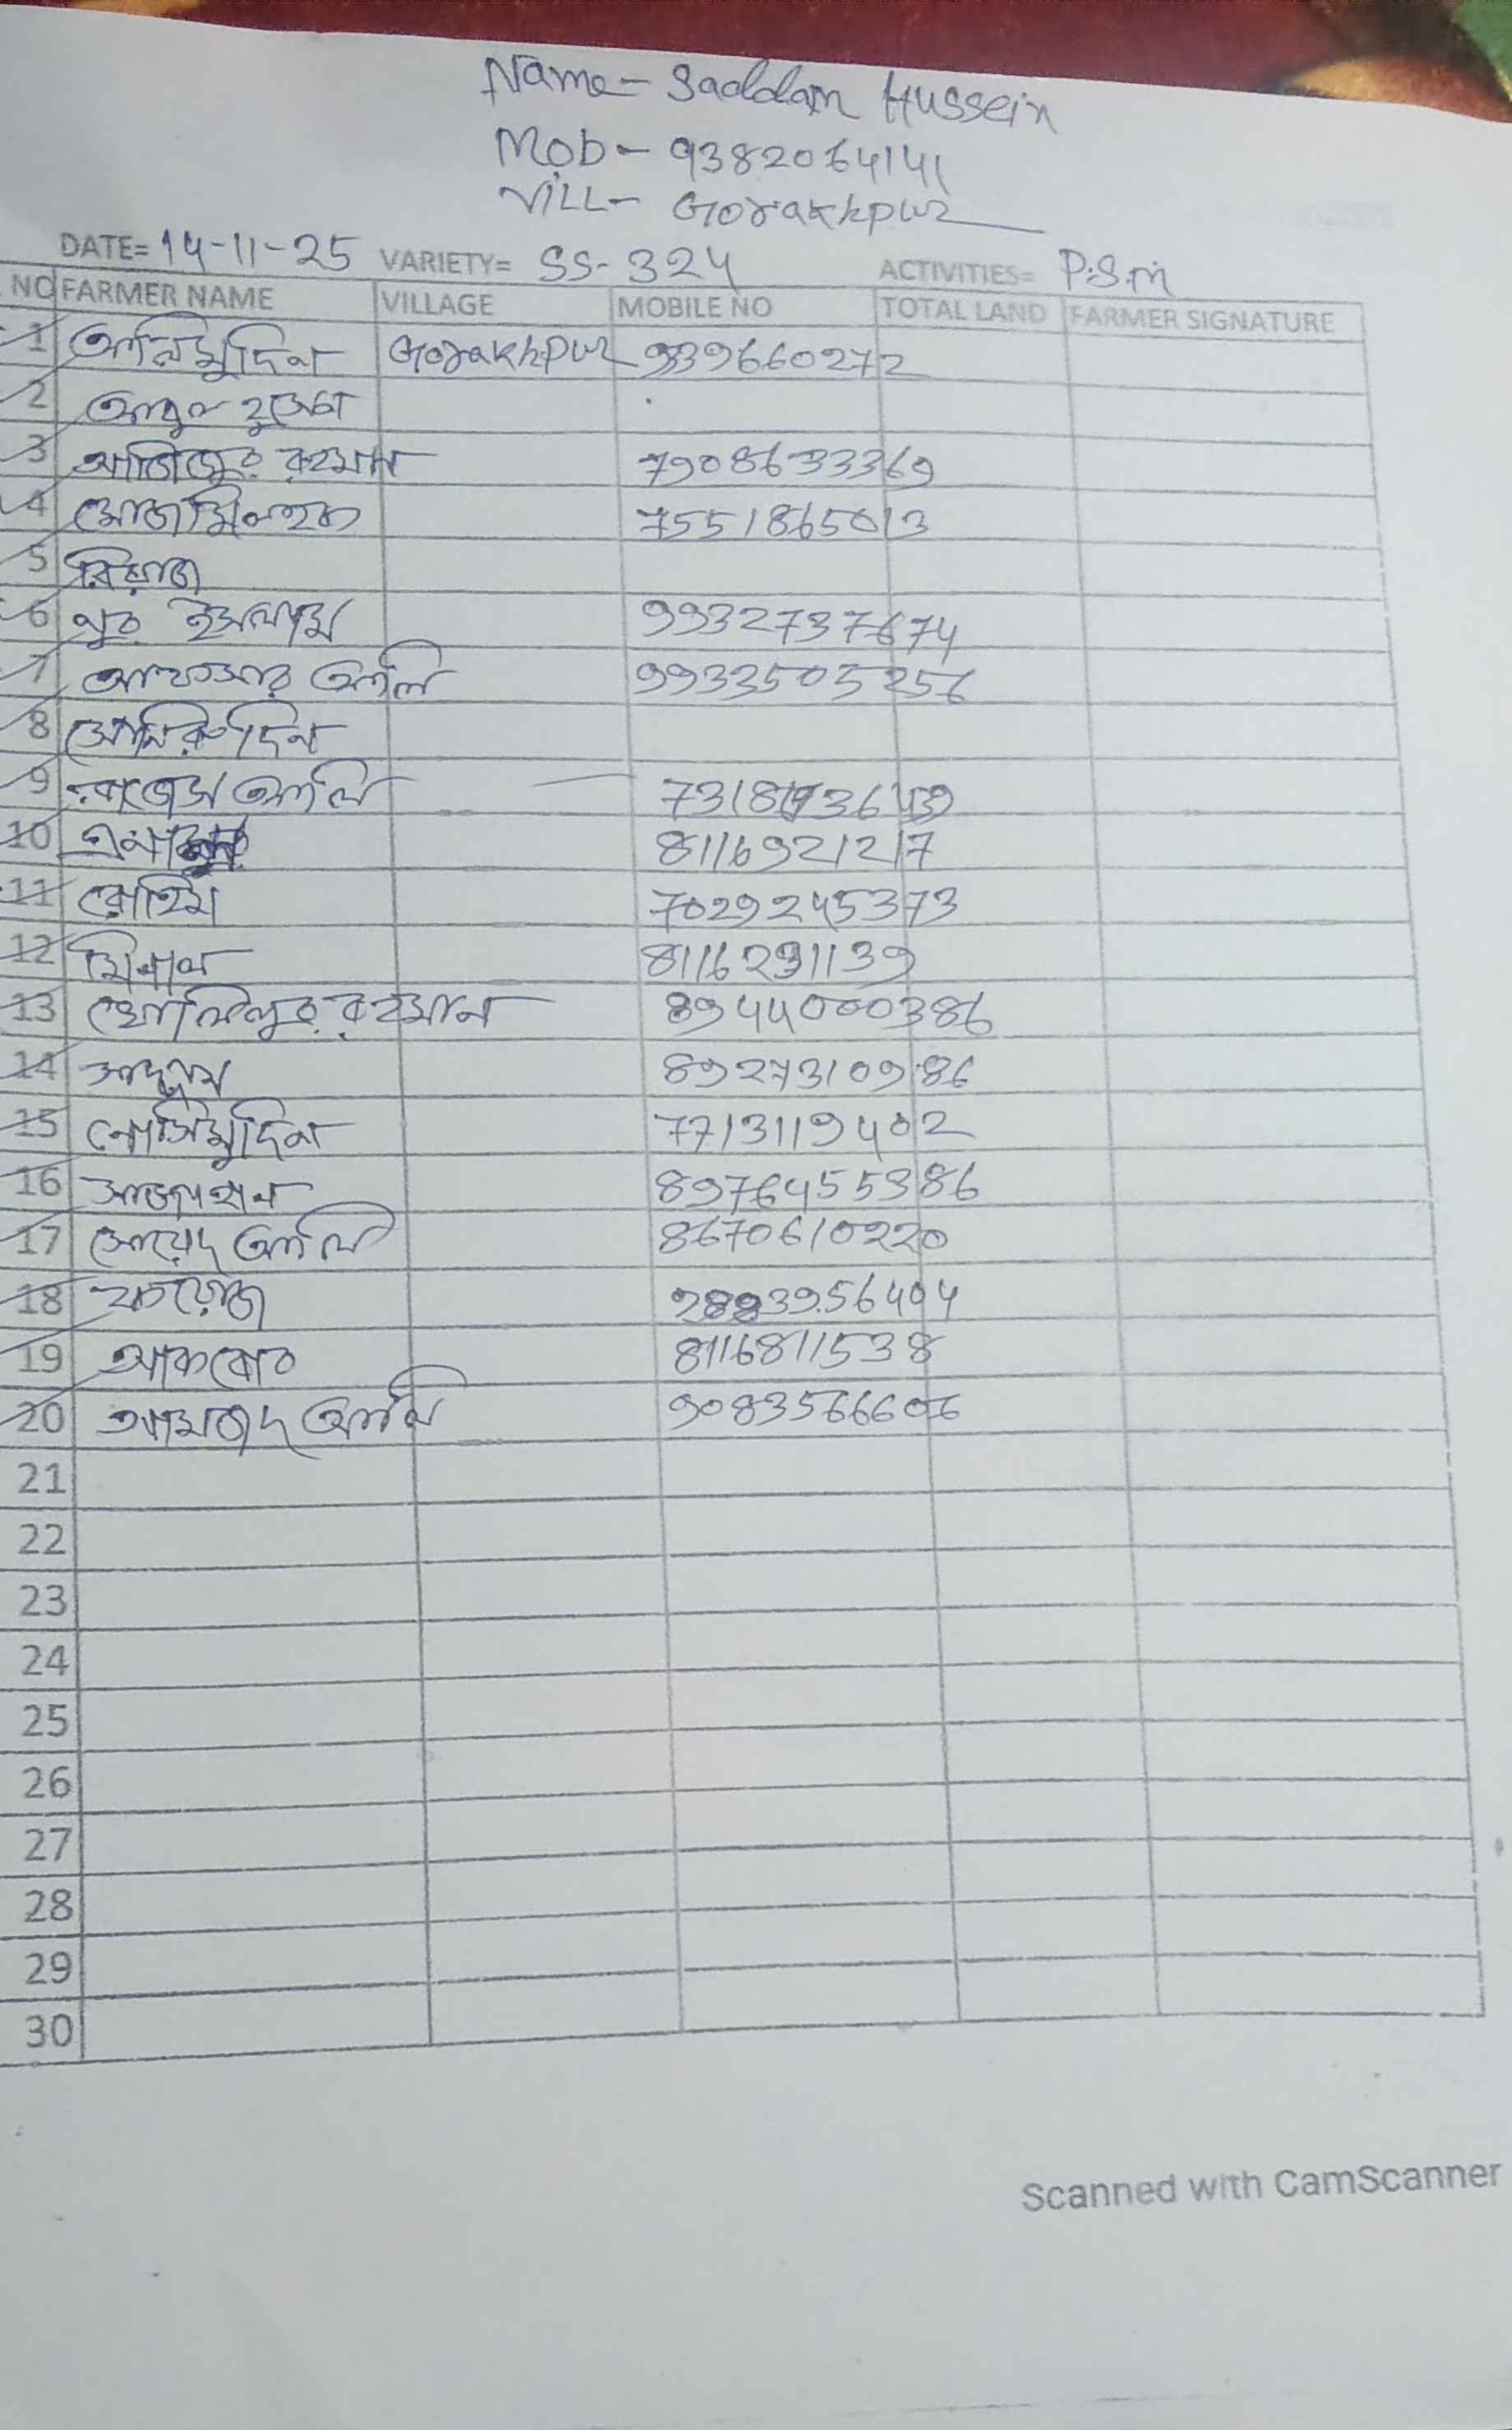 Name - Saddam Hussein
Mob - 9382064141
VILL - Gorakhpur
DATE= 14-11-25 VARIETY= SS-324 ACTIVITIES= P.S.M
NO FARMER NAME VILLAGE MOBILE NO TOTAL LAND FARMER SIGNATURE
1 আলিমুদিন Gorakhpur 939660272
2 আবুল
3 আজিজুর রহমান 7908633369
4 7551865013
5 রিয়াজ
6 নুর ইসলাম 9932737674
7 আফসার আলি 9933505256
8 মোনিরুদিন
9 আলি
10 8116921217
11 রোহিম 7029245373
12 মিলান 8116291139
13 খোলিলুর রহমান 8944000386
14 সাদ্দাম 8927310986
15 নোসিমুদিন 7713119402
16 সাজাহান 8976455386
17 সোয়েদ আলি 8670610220
18 ফয়েজ
19 আকবোর 8116811538
20 আমজাদ আলি 9083566606
21
22
23
24
25
26
27
28
29
30
Scanned with CamScanner